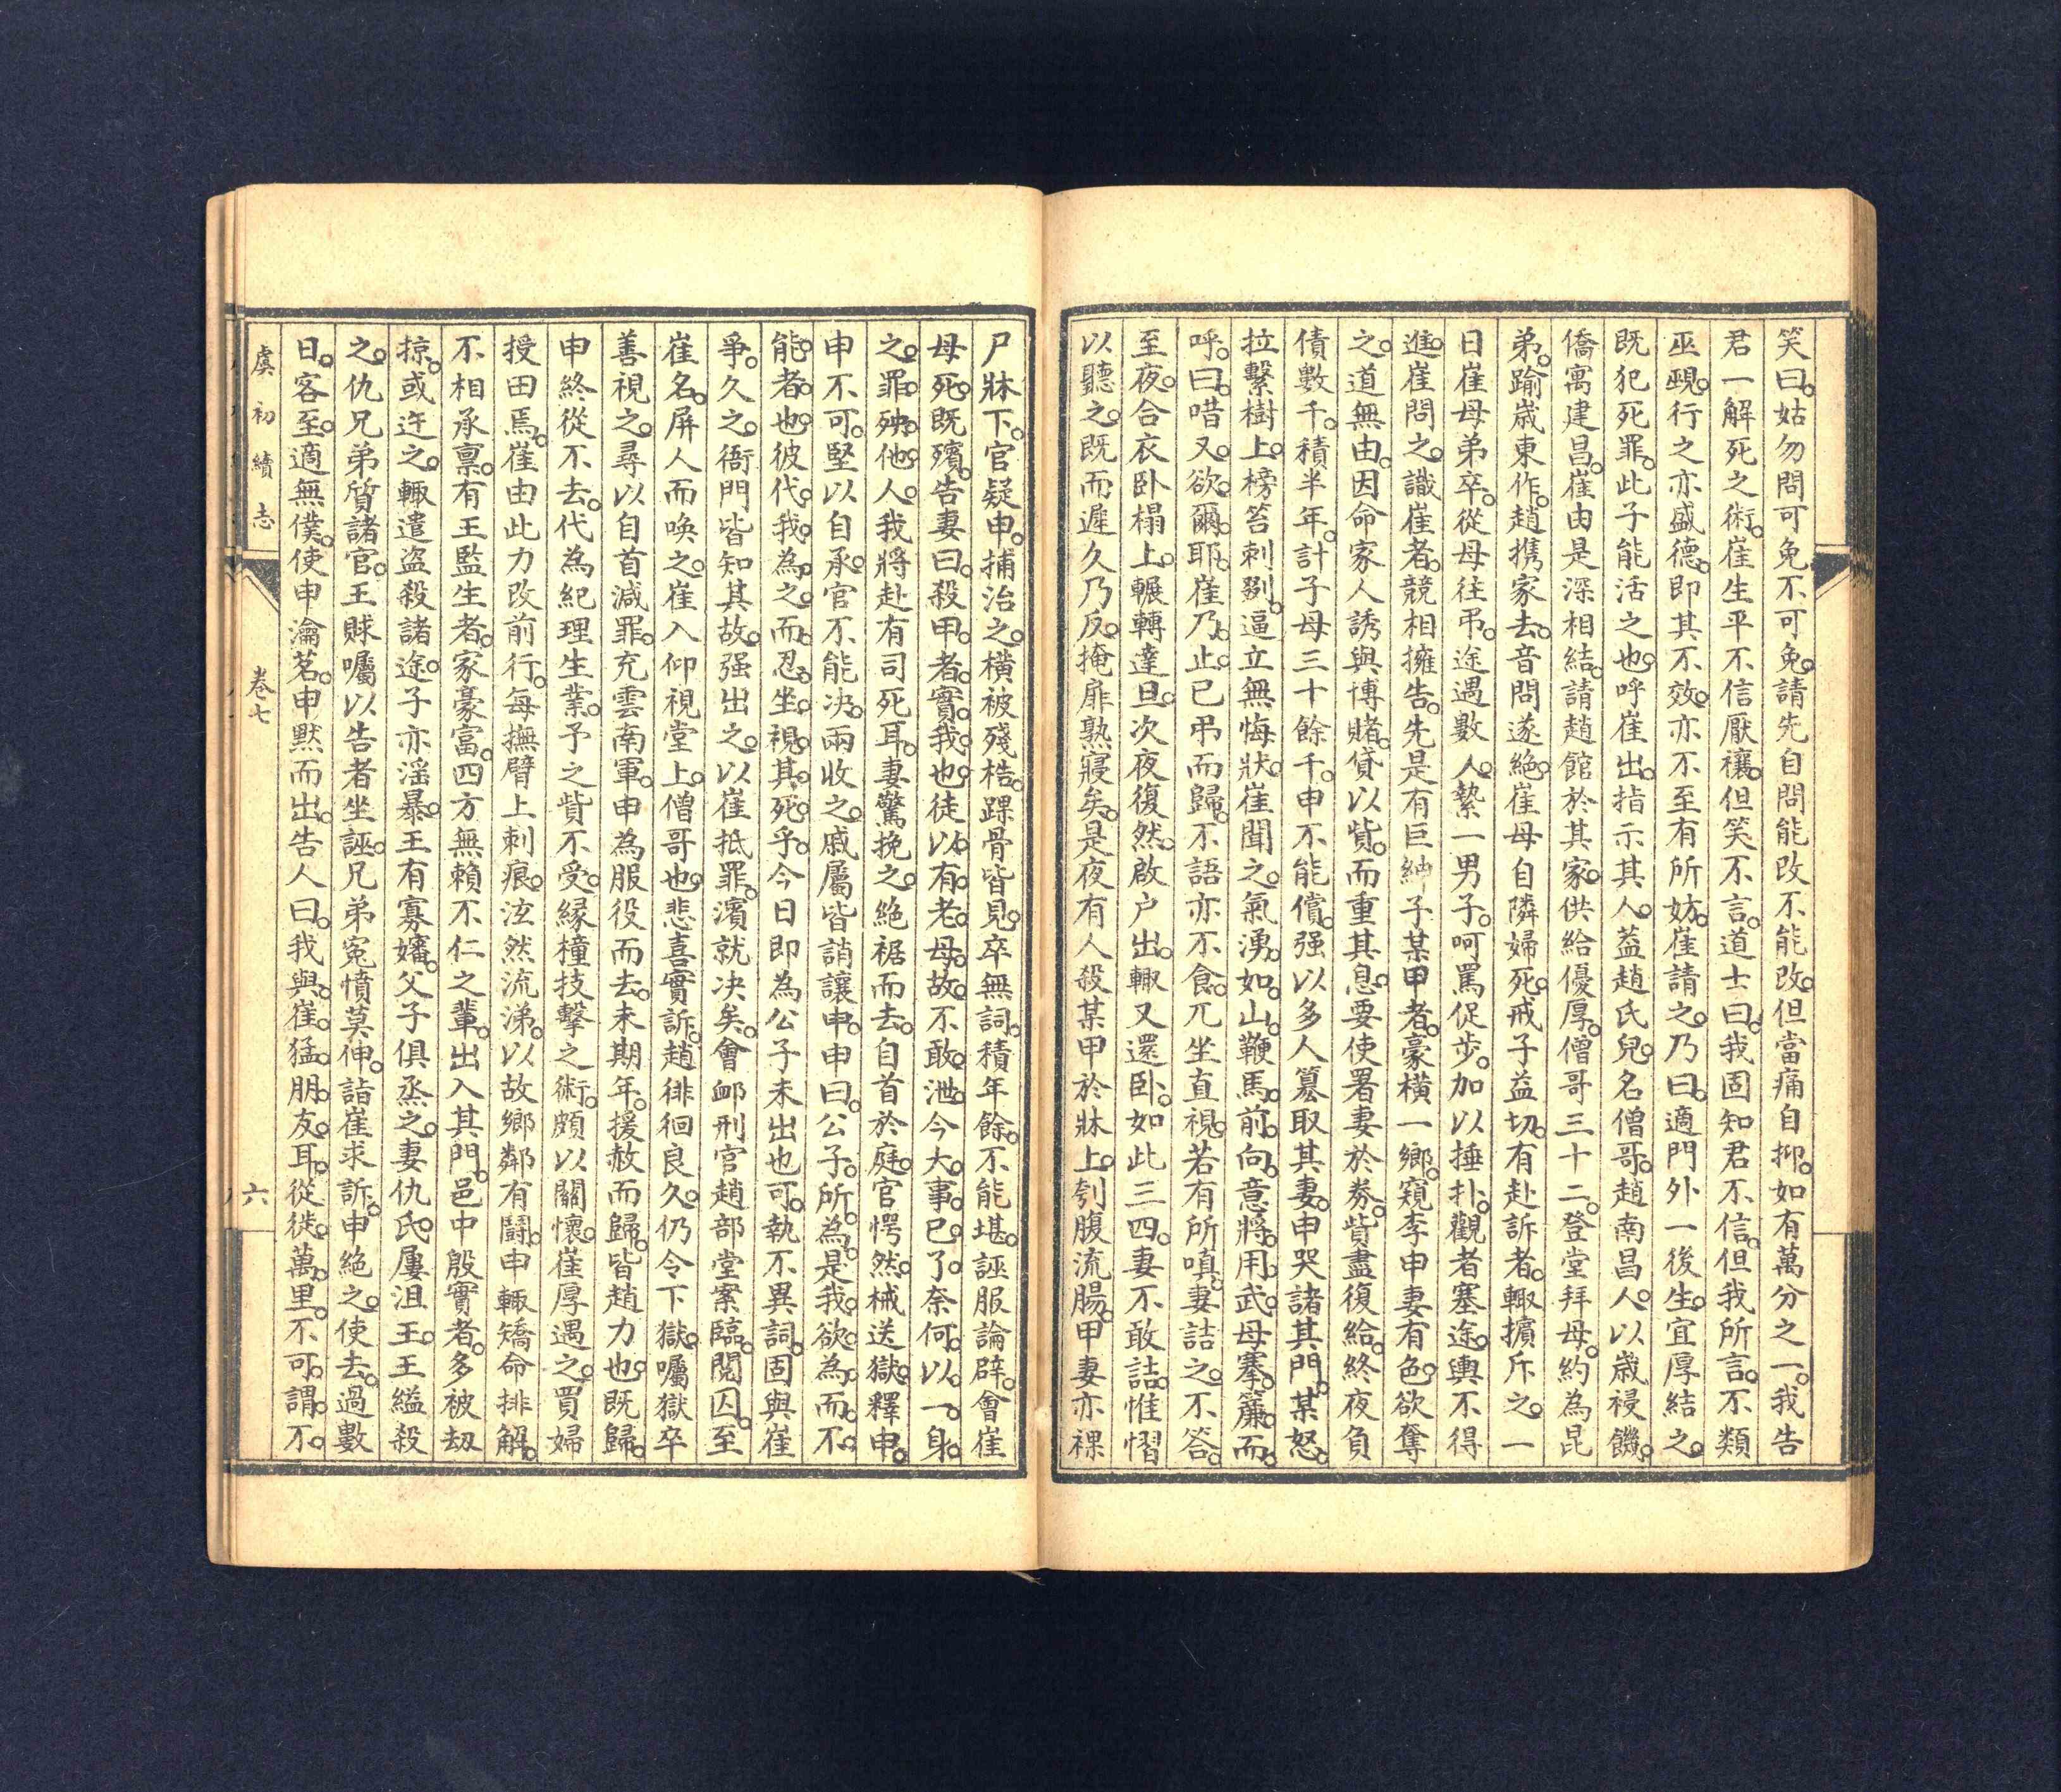 笑曰。姑勿問可免不可免。請先自問能改不能改。但當痛自抑。如有萬分之一。我告
君一解死之術。崔生平不信厭禳。但笑不言。道士曰。我固知君不信。但我所言。不類
巫覡。行之亦盛德。即其不效。亦不至有所妨。崔請之。乃曰。適門外一後生。宜厚結之。
既犯死罪。此子能活之也。呼崔出。指示其人。葢趙氏兒。名僧哥。趙南昌人。以歲祲饑。
僑寓建昌。崔由是深相結。請趙館於其家。供給優厚。僧哥三十二。登堂拜母。約為昆
弟。踰歲東作。趙携家去。音問遂絕。崔母自隣婦死。戒子益切。有赴訴者。輒擯斥之。一
日崔母弟卒。從母往弔。途遇數人。縶一男子。呵罵促步。加以捶扑。觀者塞途。輿不得
進。崔問之。識崔者。競相擁告。先是有巨紳子某甲者。豪橫一鄉。窺李申妻有色。欲奪
之。道無由。因命家人誘與博賭。貸以貲。而重其息。要使署妻於券。貲盡復給。終夜負
債數千。積半年。計子母三十餘千。申不能償。强以多人篡取其妻。申哭諸其門。某怒。
拉繫樹上。榜笞刺剟。逼立無悔狀。崔聞之。氣湧如山。鞭馬前向。意將用武。母搴簾而
呼。曰。唶又欲爾耶。崔乃止。已弔而歸。不語亦不食。兀坐直視。若有所嗔。妻詰之。不答。
至夜。合衣卧榻上。輾轉達旦。次夜復然。啟户出。輒又還卧。如此三四。妻不敢詰。惟慴
以聽之。既而遲久乃反。掩扉熟寢矣。是夜有人殺某甲於牀上。刳腹流腸。甲妻亦裸
尸牀下。官疑申。捕治之。橫被殘梏。踝骨皆見。卒無詞。積年餘。不能堪。誣服論辟。會崔
母死。既殯。告妻曰。殺甲者。實我也。徒以有老母故。不敢泄。今大事已了。奈何以一身
之罪。殃他人。我將赴有司死耳。妻驚挽之。絕裾而去。自首於庭。官愕然。械送獄。釋申。
申不可。堅以自承。官不能决。兩收之。戚屬皆誚讓申。申曰。公子所為。是我欲為而不
能者也。彼代我為之。而忍坐視其死乎。今日即為公子未出也可。執不異詞。固與崔
爭。久之。衙門皆知其故。强出之。以崔抵罪。瀕就决矣。會卹刑官趙部堂案臨。閱囚。至
崔名。屏人而喚之。崔入仰視堂上。僧哥也。悲喜實訴。趙徘徊良久。仍令下獄。囑獄卒
善視之。尋以自首減罪。充雲南軍。申為服役而去。未期年。援赦而歸。皆趙力也。既歸。
申終從不去。代為紀理生業。予之貲不受。緣橦技擊之術。頗以關懷。崔厚遇之。買婦
授田焉。崔由此力改前行。每撫臂上刺痕。泫然流涕。以故鄉鄰有鬪。申輒矯命排解。
不相承禀。有王監生者。家豪富。四方無賴不仁之輩。出入其門。邑中殷實者。多被刼
掠。或迕之。輒遣盜殺諸途。子亦淫暴。王有寡嬸。父子俱烝之。妻仇氏。屢沮王。王縊殺
之。仇兄弟質諸官。王賕囑以告者坐誣。兄弟冤憤莫伸。詣崔求訴。申絕之。使去。過數
日。客至。適無僕。使申瀹茗。申默而出。告人曰。我與崔猛朋友耳。從徙萬里。不可謂不
虞初續志
卷七
六